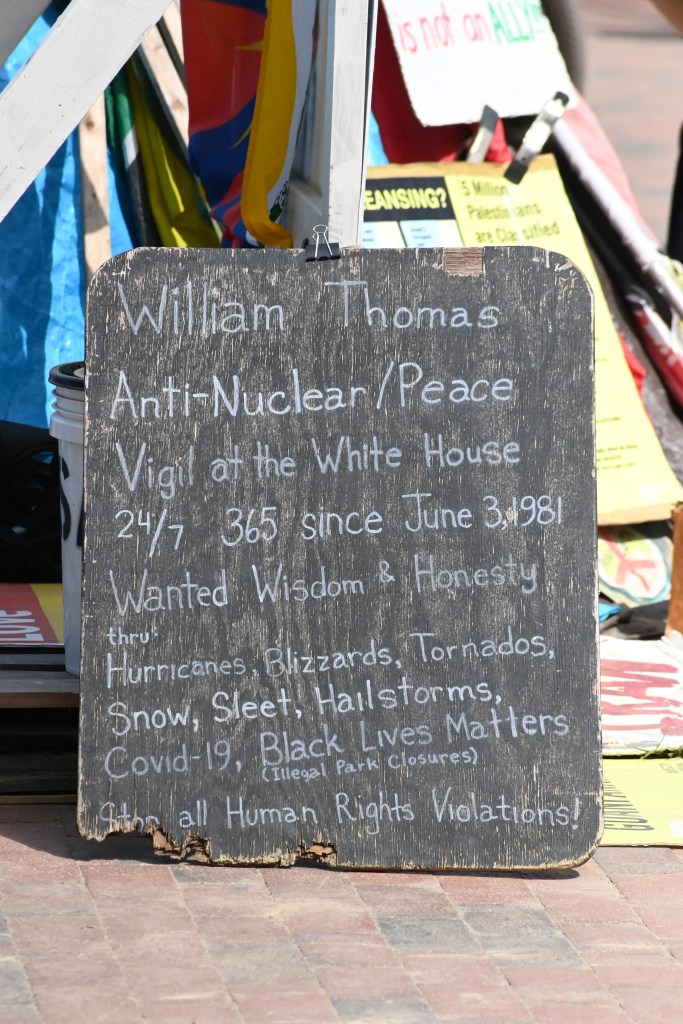 is not an ALLY
EANSING?
5 Million
Palestinians
are Classified
William Thomas
Anti-Nuclear/Peace
Vigil at the White House
24/7 365 since June 3, 1981
Wanted Wisdom & Honesty
thru:
Hurricanes, Blizzards, Tornados,
Snow, Sleet, Hailstorms,
Covid-19, Black Lives Matters
(Illegal Park Closures)
Stop all Human Rights Violations!
LOVE